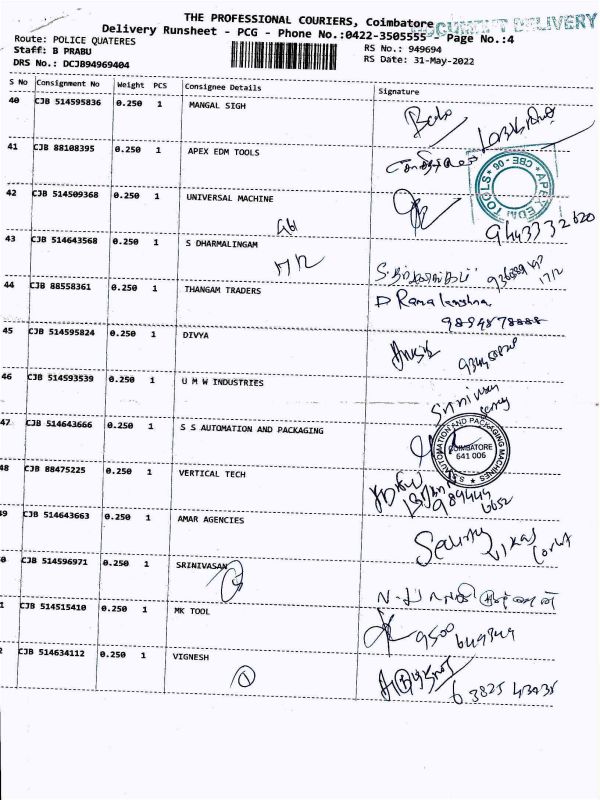 THE PROFESSIONAL COURIERS, Coimbatore
DOCUMENT DELIVERY
Delivery Runsheet - PCG - Phone No.:0422-3505555 - Page No.:4
Route: POLICE QUATERES
RS No.: 949694
Staff: B PRABU
RS Date: 31-May-2022
DRS No.: DCJB94969404
S No Consignment No Weight PCS Consignee Details Signature
40 CJB 514595836 0.250 1 MANGAL SIGH
41 CJB 88108395 0.250 1 APEX EDM TOOLS
APEX EDM TOOLS CBE - 06
42 CJB 514509368 0.250 1 UNIVERSAL MACHINE
9443332620
43 CJB 514643568 0.250 1 S DHARMALINGAM
44 CJB 88558361 0.250 1 THANGAM TRADERS
D Ramakrishna
9894878888
45 CJB 514595824 0.250 1 DIVYA
46 CJB 514593539 0.250 1 U M W INDUSTRIES
Srinivasan
47 CJB 514643666 0.250 1 S S AUTOMATION AND PACKAGING
S.S AUTOMATION AND PACKAGING MACHINES
COIMBATORE
641 006
48 CJB 88475225 0.250 1 VERTICAL TECH
49 CJB 514643663 0.250 1 AMAR AGENCIES
0 CJB 514596971 0.250 1 SRINIVASAN
1 CJB 514515410 0.250 1 MK TOOL
9500
2 CJB 514634112 0.250 1 VIGNESH